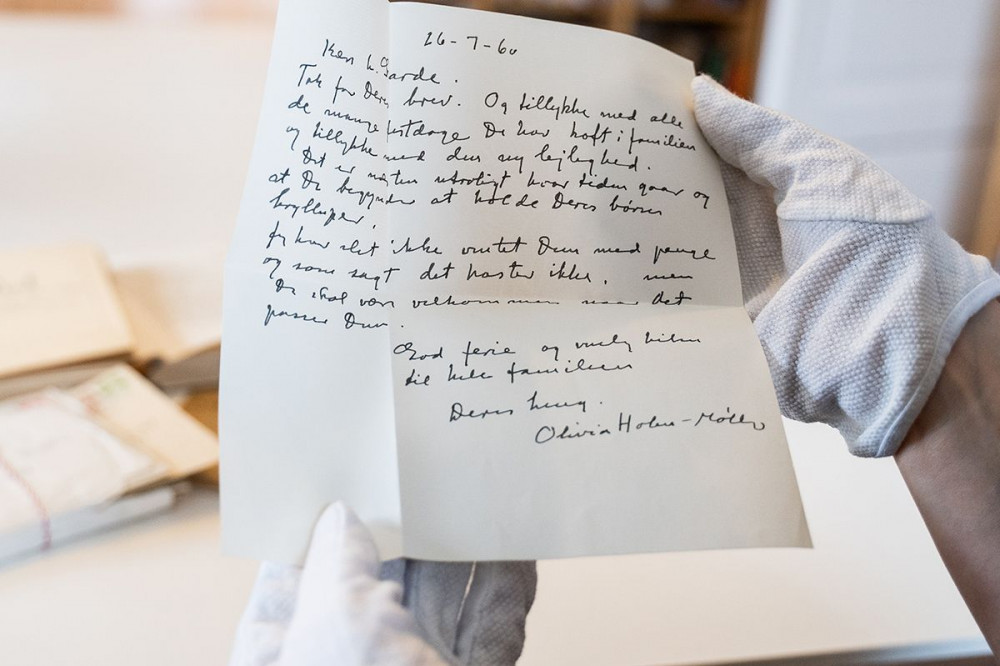 26-7-60
Kær h. Garde.
Tak for Deres brev. Og tillykke med alle
de mange festdage De har haft i familien
og tillykke med den ny lejlighed.
Det er næsten utroligt hvor tiden gaar og
at De begynder at holde Deres børns
bryllupper.
Jeg har slet ikke ventet Dem med penge
og som sagt det haster ikke, men
De skal være velkommen naar det
passer Dem.
God ferie og venlig hilsen
til hele familien
Deres heng.
Olivia Holm-Møller